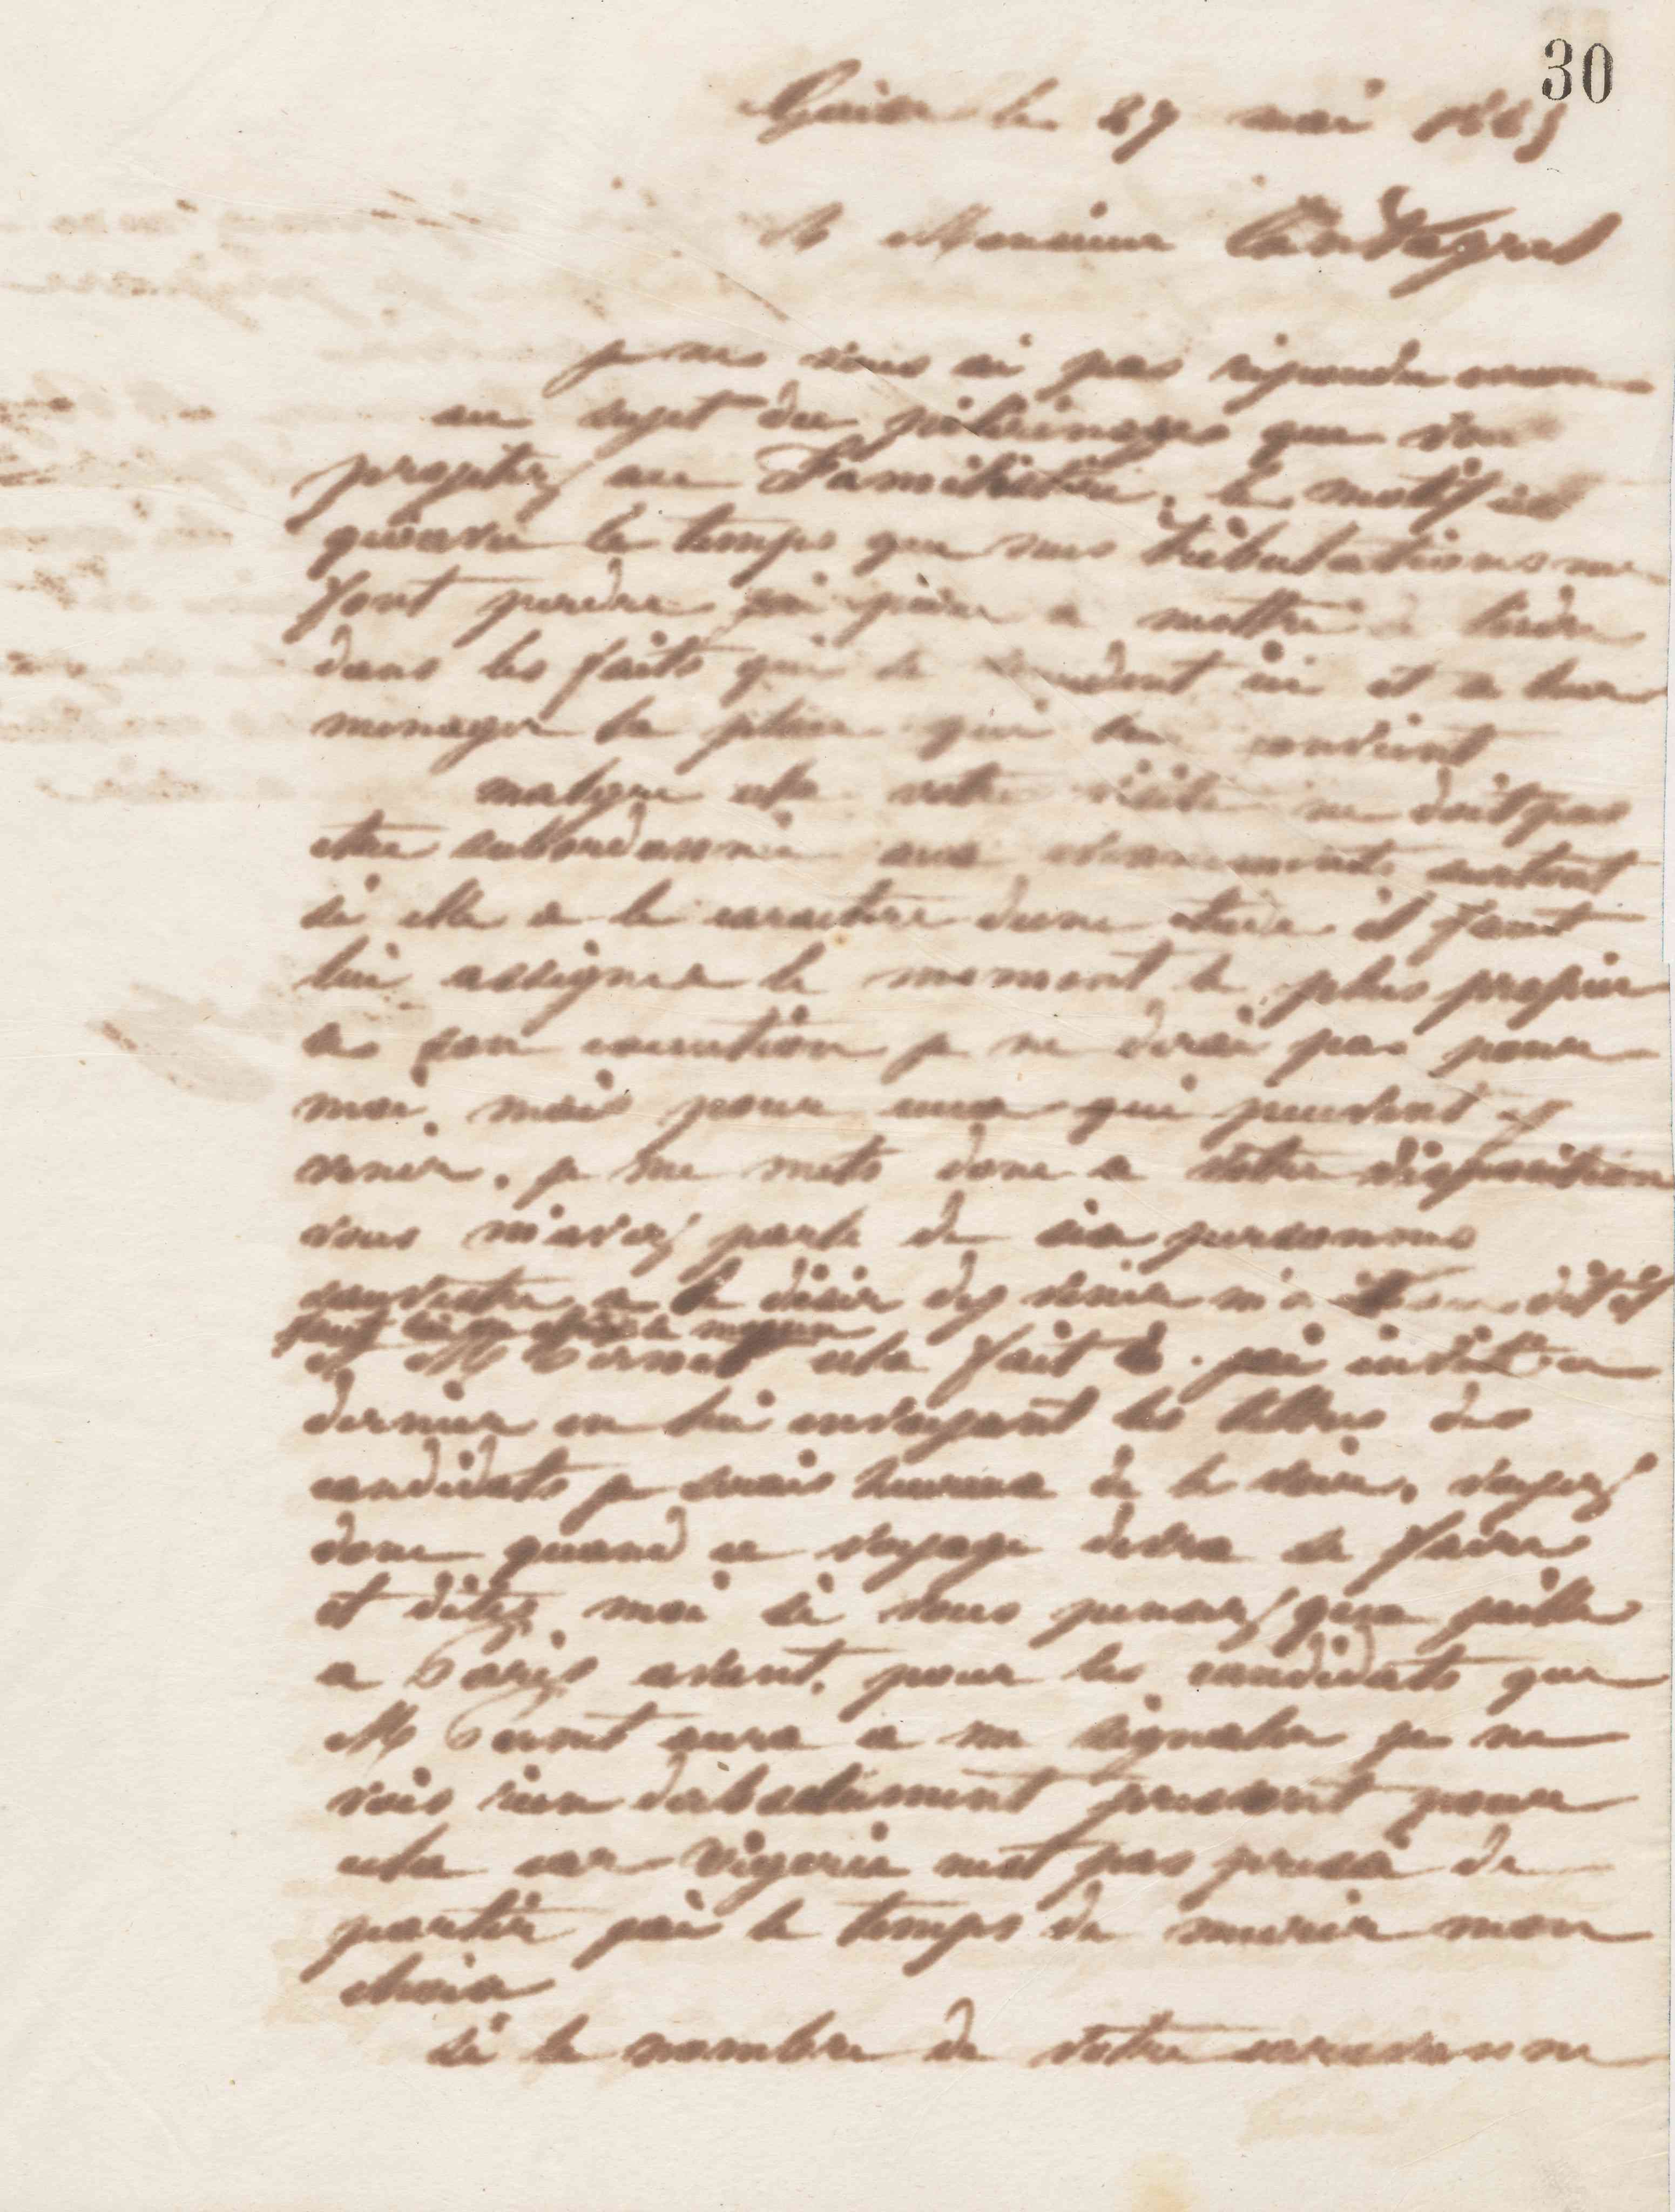 30
Guise le 27 mai 1865
A Monsieur Cantagrel
je ne vous ai pas répondu encore
au sujet du pélerinages que vous
projetez au Familistère, le motif est
qu'avec le temps que mes tribulations me
font perdre j'ai peine a mettre de l'ordre
dans les faits qui se ici et a leur
menager la place qui leur convient
malgre cela votre visite ne doit pas
etre subordonnée aux evennements surtout
si elle a le caractere dune etude il faut
lui assigner le moment le plus propice
a son execution je ne dirai pas pour
moi, mais pour ceux qui peuvent y
venir. je me mets donc a votre disposition
vous m'avez parlé de six personnes
sauvestre a le désir dy venir m'a dit il
faut
et M cela fait 8. j'ai invité ce
dernier en lui envoyant les lettres des
candidats je serais heureux de le voir, voyez
donc quand ce voyage devra se faire
et dites moi si vous pensez que j'aille
a Paris avant, pour les candidats que
M aura a me signaler je ne
vois rien d'absolument pressant pour
cela car Vigerie n'est pas pressé de
partir j'ai le temps de murir mon
choix
si le nombre de votre caravanne